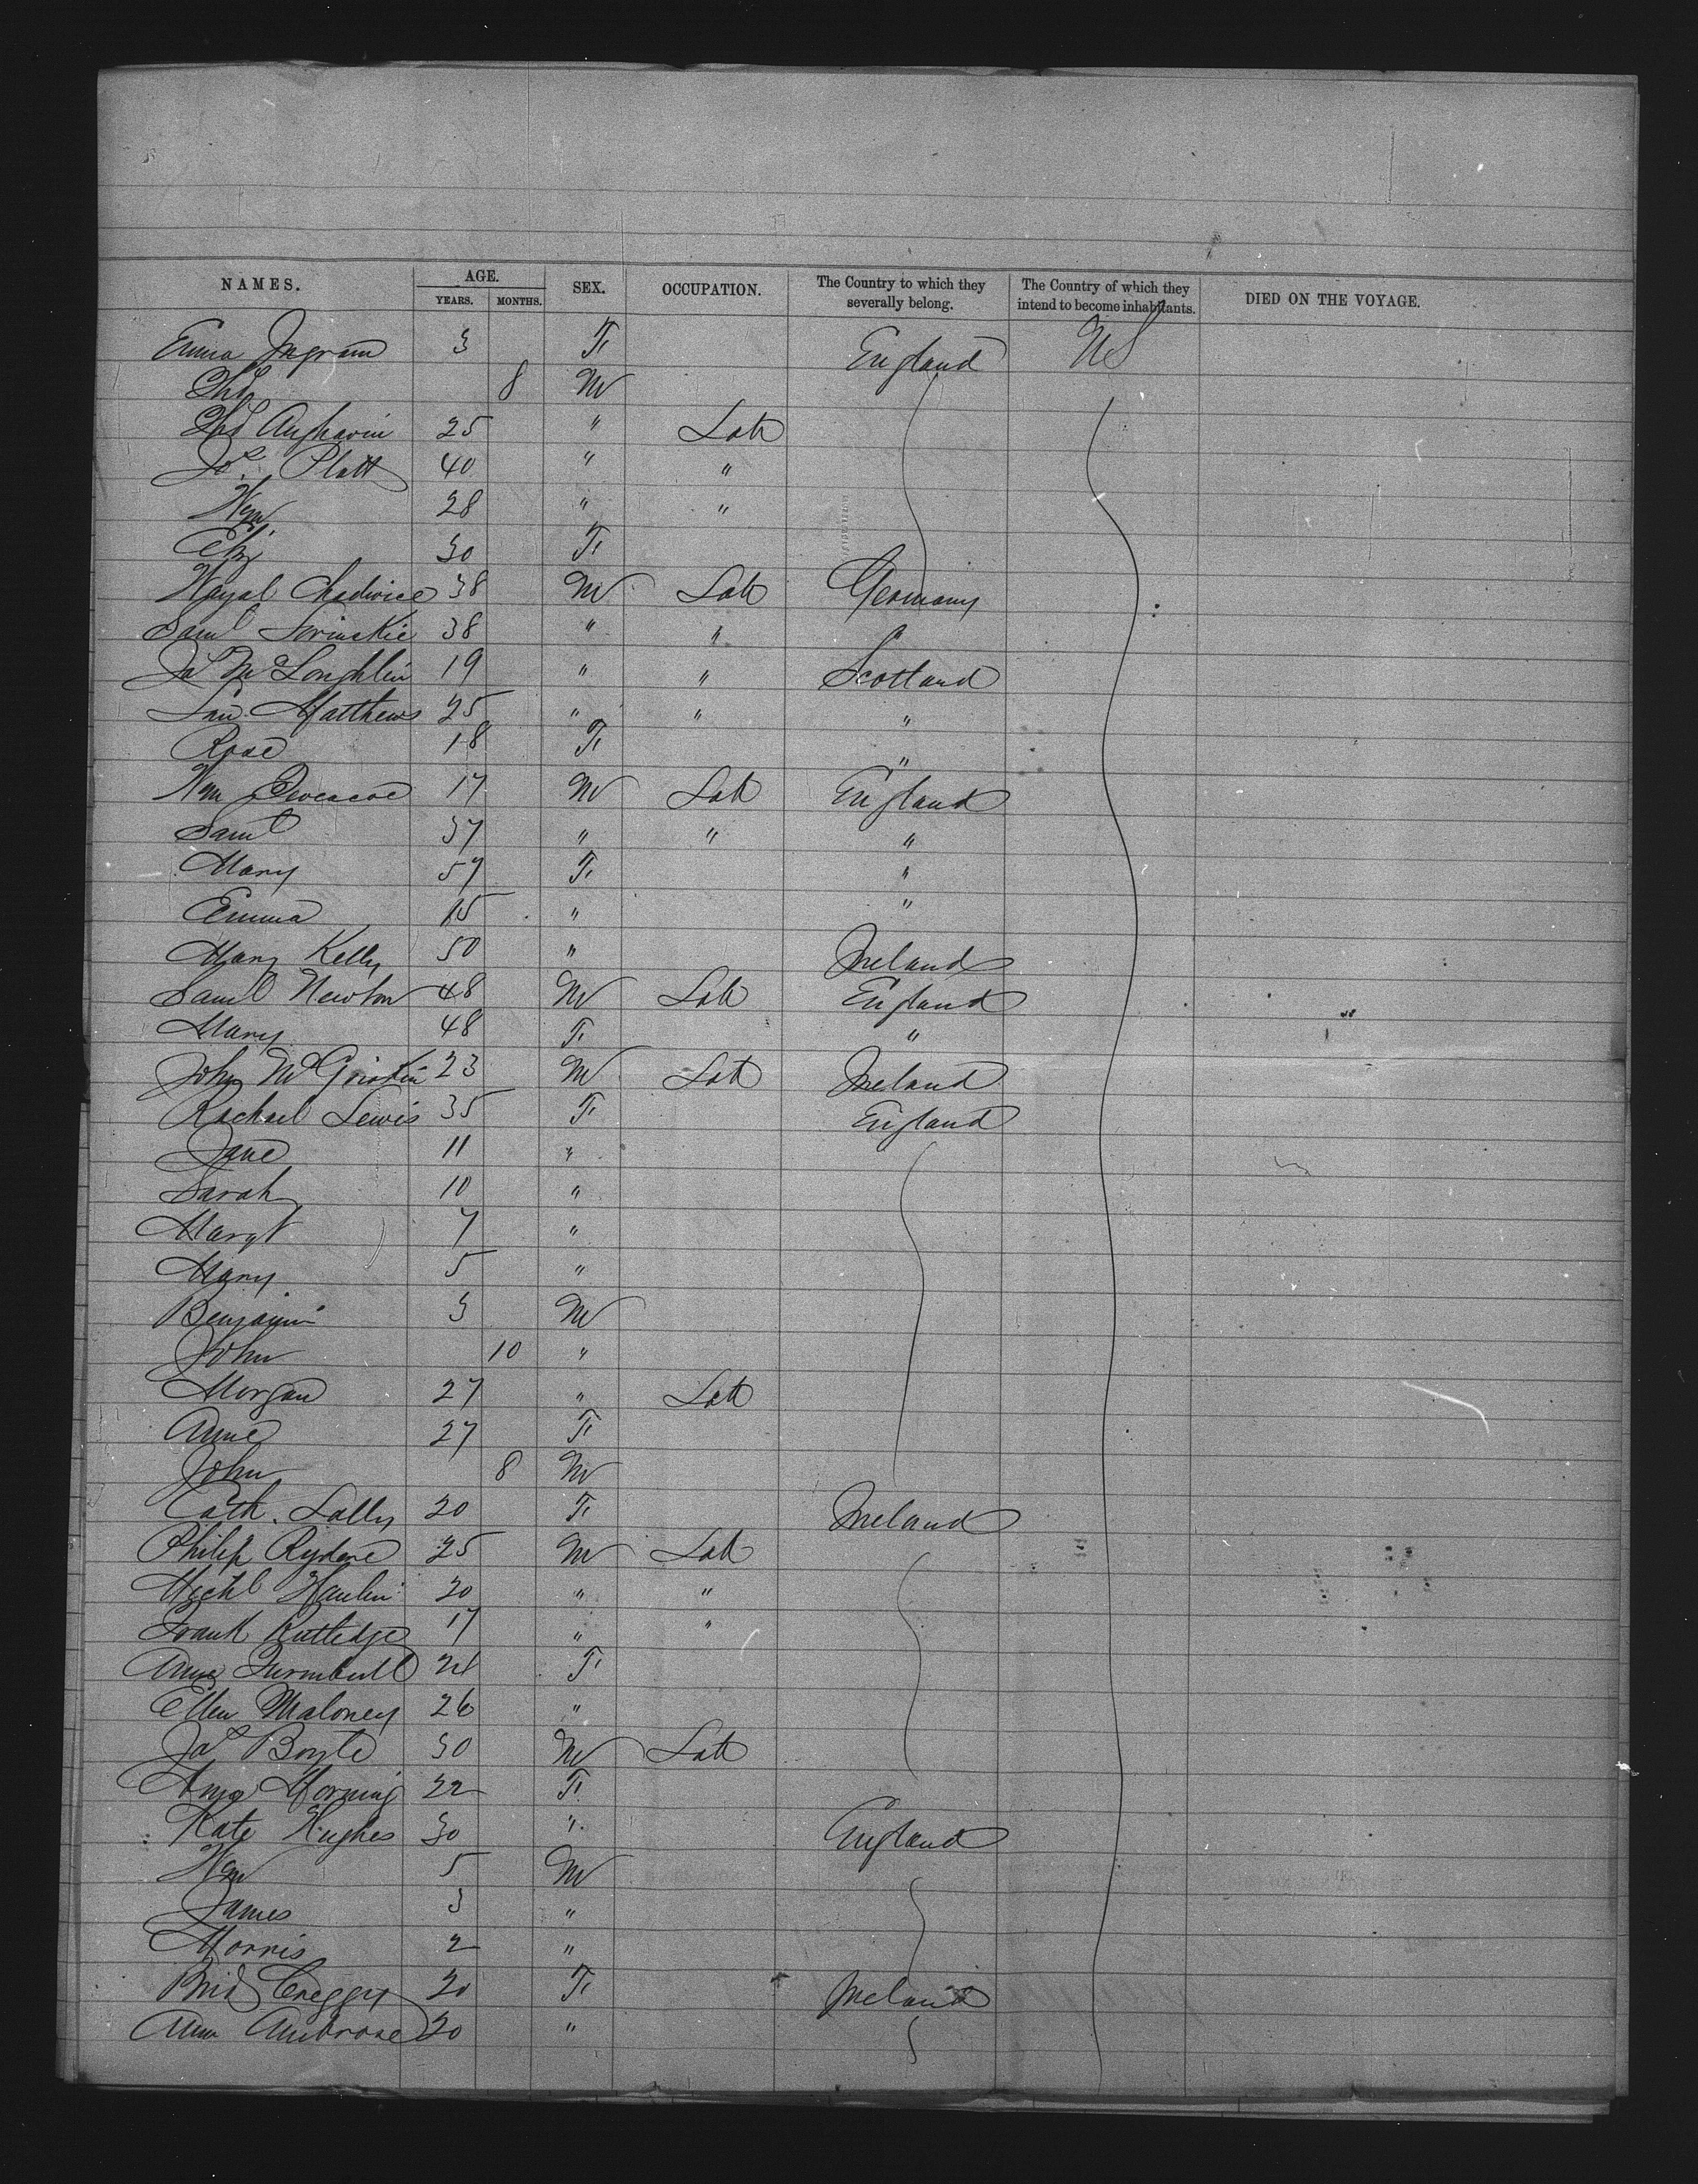 NAMES. AGE. YEARS. MONTHS. SEX. OCCUPATION. The Country to which they severally belong. The Country of which they intend to become inhabitants. DIED ON THE VOYAGE.
Emma Ingram 3 F England US
Thos 8 M
Thos 25 " Lab
Jos Platt 40 " "
Wm 28 " "
Eliz 30 F
38 M Lab Germany
Saml 38 " "
Jas McLoughlin 19 " " Scotland
Matthews 25 " " "
Rose 18 F "
Wm 17 M Lab England
Saml 57 " " "
Mary 57 F "
Emma 15 " "
Mary Kelly 50 " Ireland
Saml Newton 48 M Lab England
Mary 48 F "
John 23 M Lab Ireland
Rachael Lewis 35 F England
Jane 11 "
Sarah 10 "
Margt 7 "
Mary 5 "
Benjamin 3 M
John 10 "
Morgan 27 " Lab
Anne 27 F
John 8 M
Cath. Lally 20 F Ireland
Philip 25 M Lab
Michl Hanlin 20 " "
Frank Rutledge 17 " "
Anne Turnbull 24 F
Ellen Maloney 26 "
Jas Boyle 30 M Lab
22 F
Kate Hughes 30 " England
Wm 5 M
James 3 "
Morris 2 "
Brid Creggy 20 F Ireland
Ann Ambrose 20 "